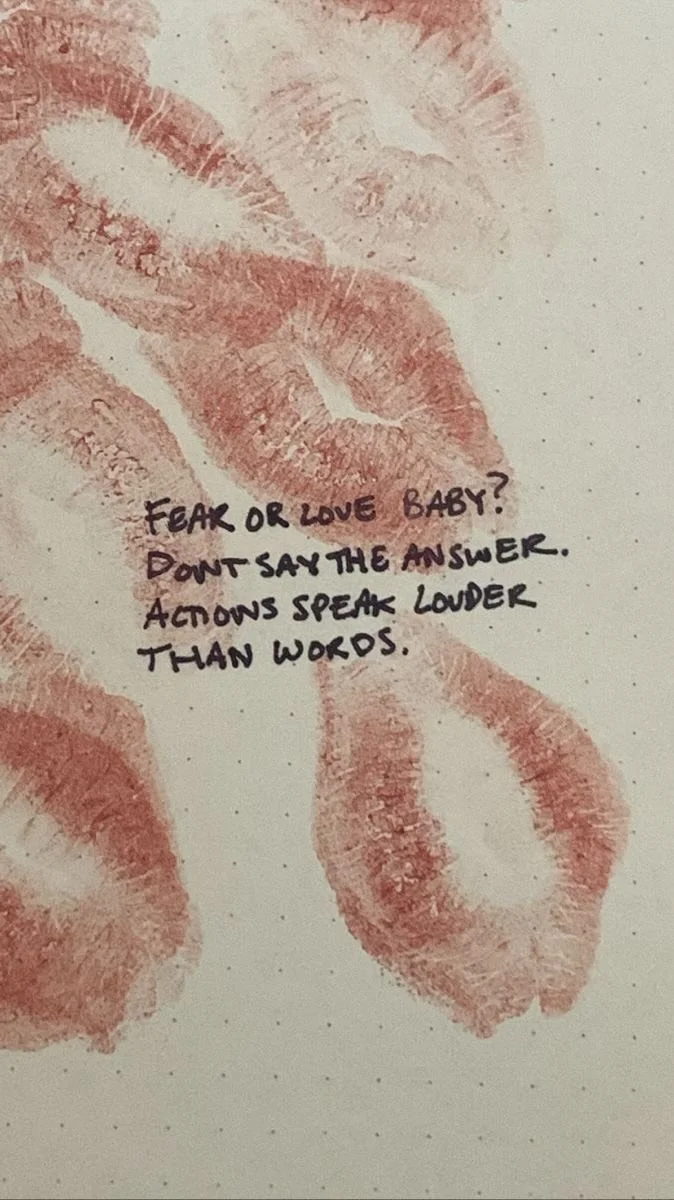 FEAR OR LOVE BABY?
DONT SAY THE ANSWER.
ACTIONS SPEAK LOUDER
THAN WORDS.